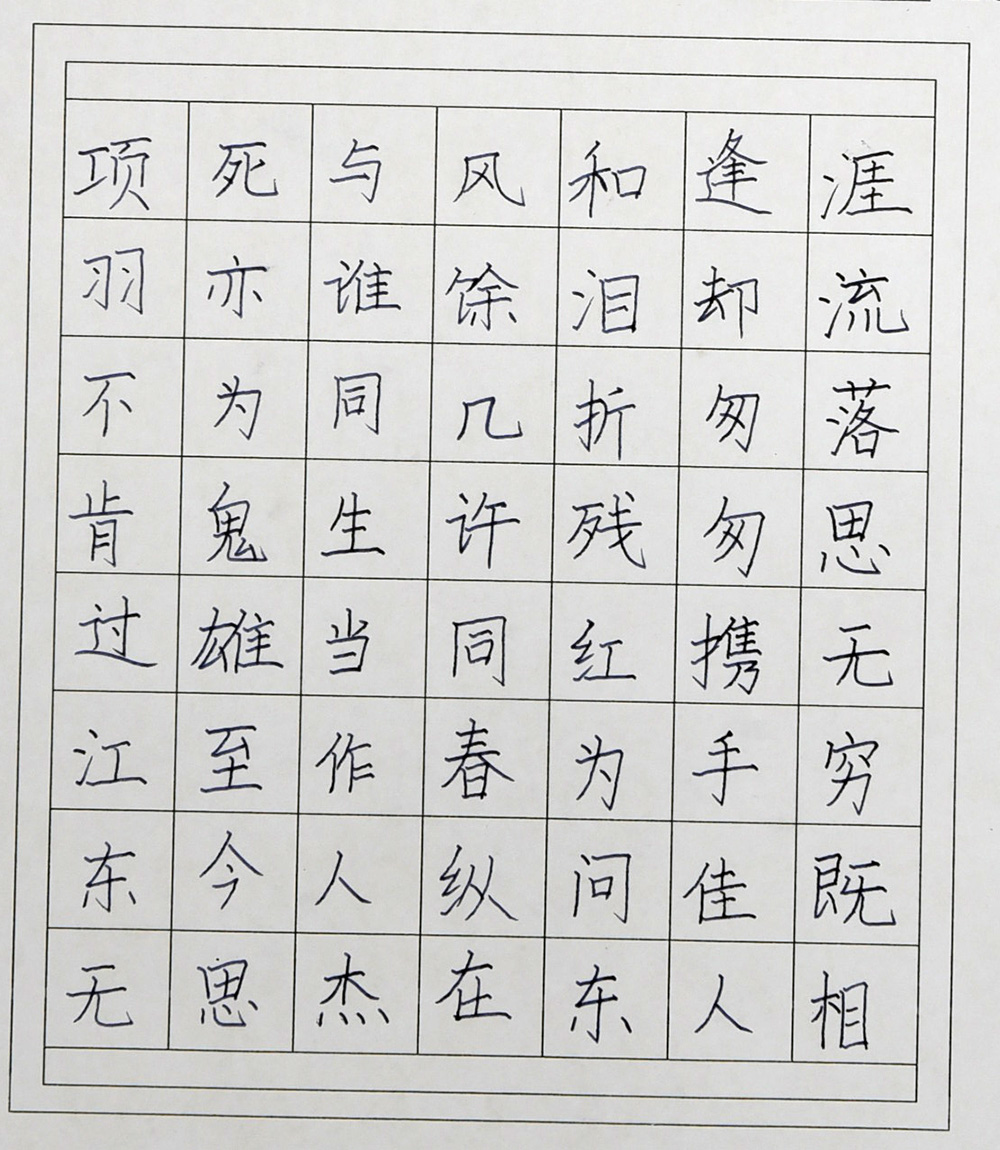 涯流落思无穷既相
逢却匆匆携手佳人
和泪折残红为问东
风馀几许同春纵在
与谁同生当作人杰
死亦为鬼雄至今思
项羽不肯过江东无